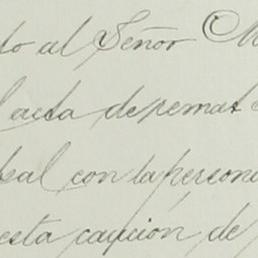 to al Señor M
l acta de remat
bal con la person
esta caución de